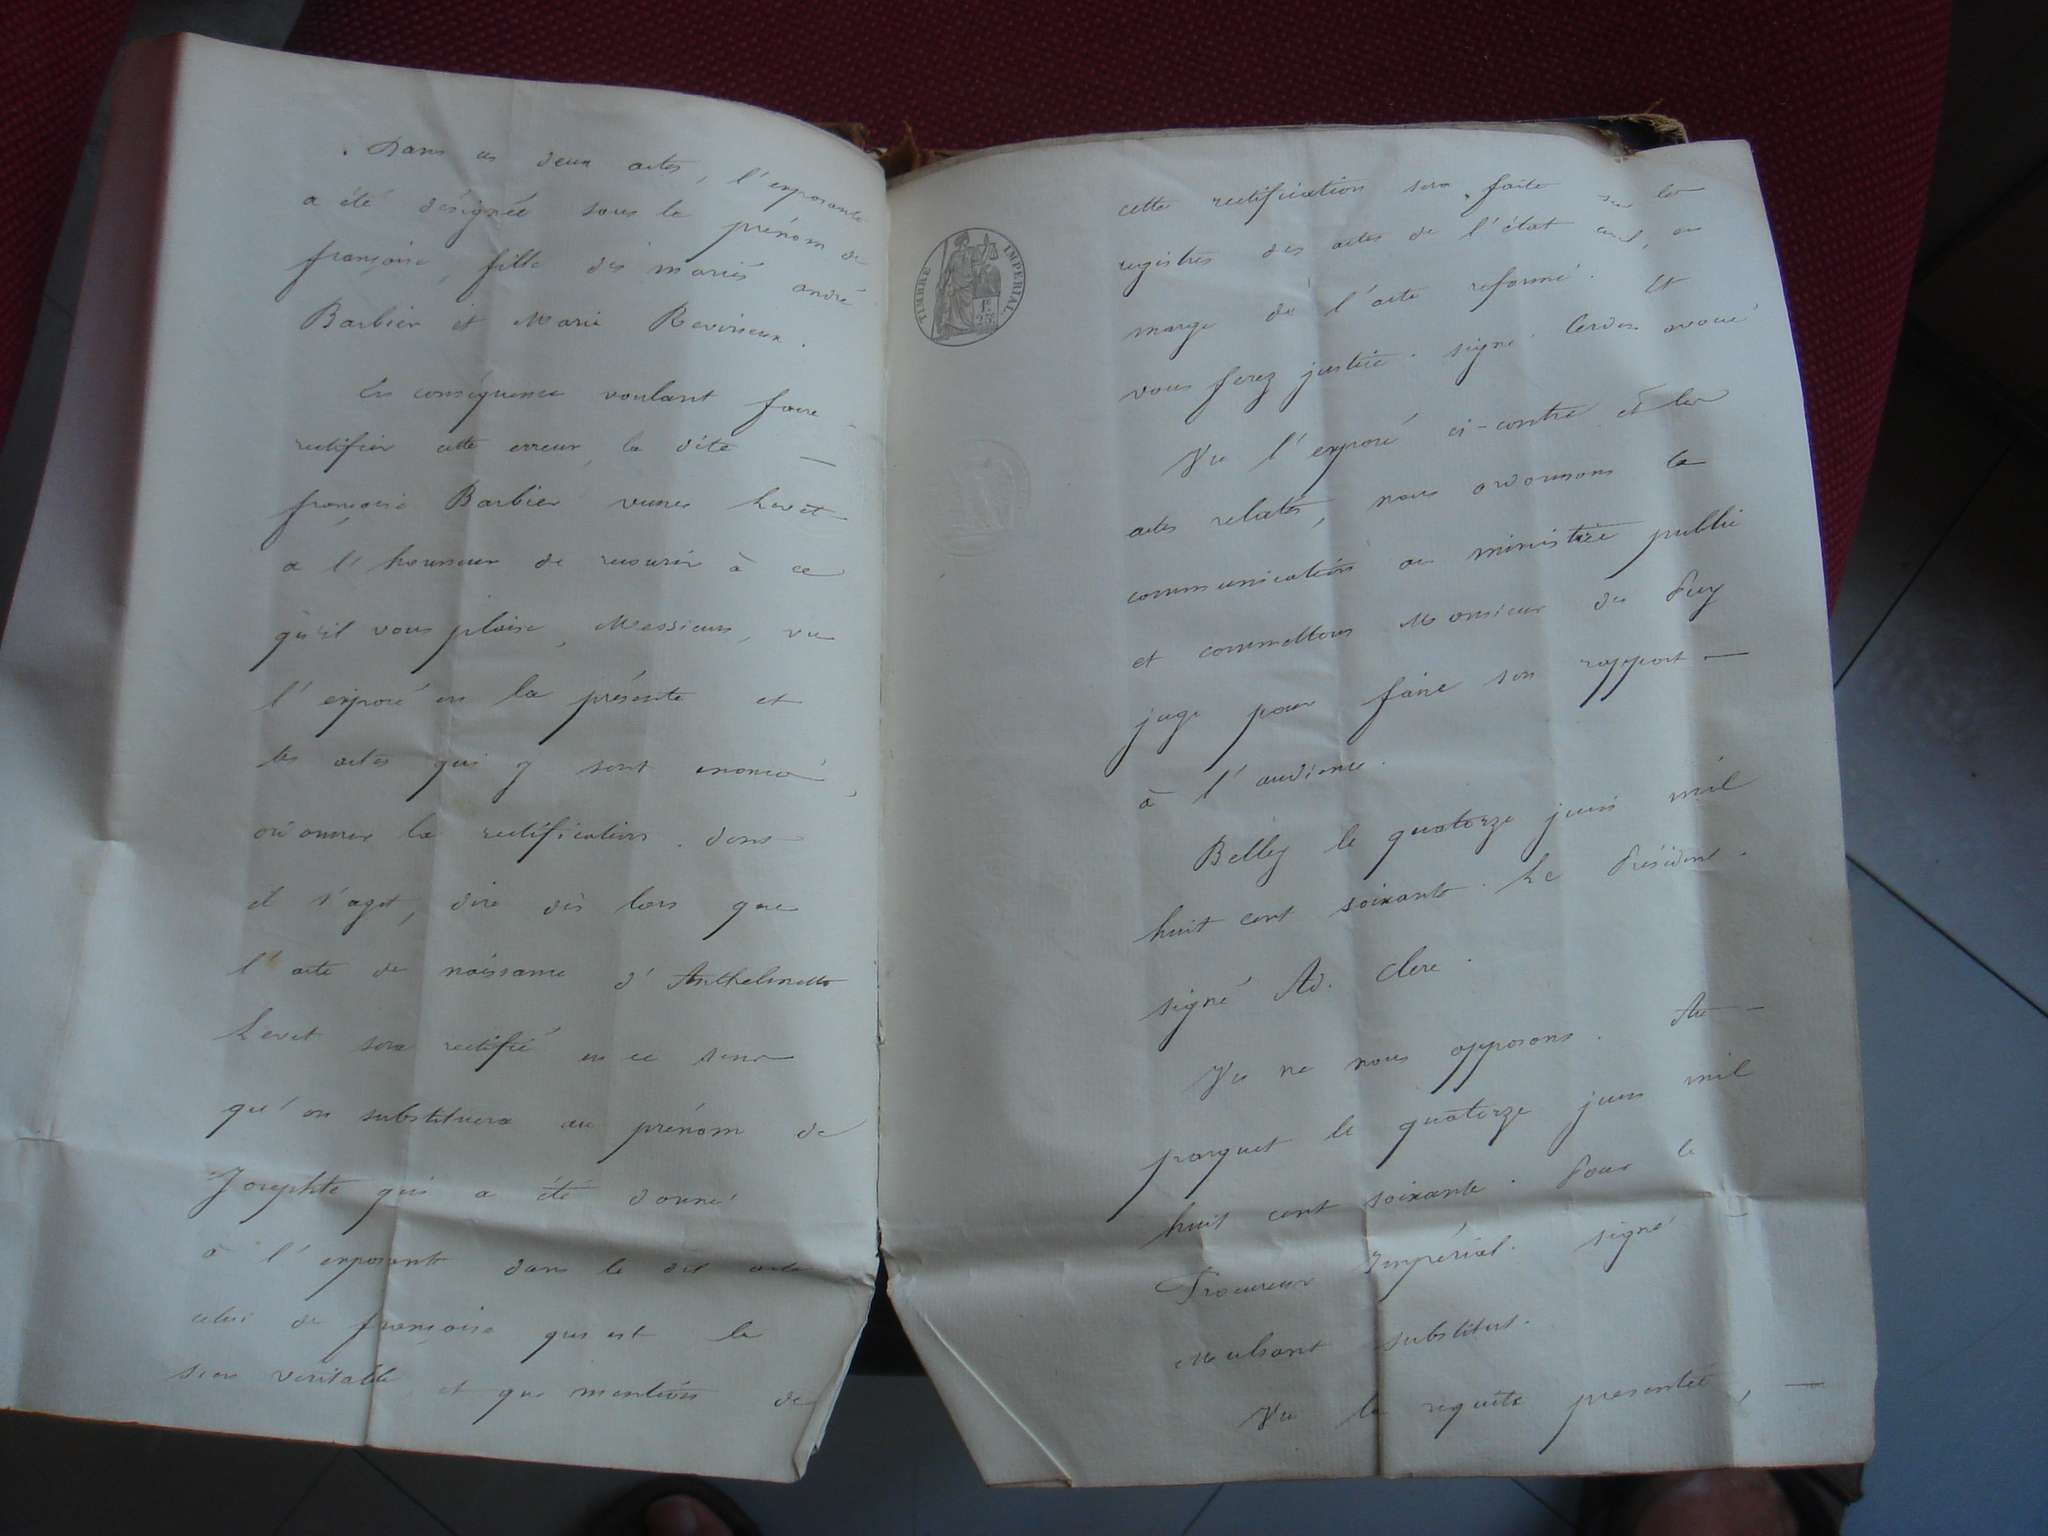 Dans ces deux actes, l'exposante
a été désignée sous le prénom de
françoise, fille des mariés andré
Barbier et Marie
En conséquence voulant faire
rectifier cette erreur, la dite —
françoise Barbier veuve Levet
a l'honneur de recourir à ce
qu'il vous plaise, Messieurs, vu
l'exposé en la présente et
les actes qui y sont énoncés,
ordonner la rectification dont
il s'agit, dire dès lors que
l'acte de naissance d'Anthelmette
Levet sera rectifié en ce sens
qu'on substituera au prénom de
Josephte qui a été donné
à l'exposante dans le dit acte
celui de françoise qui est le
sien véritable et que mention de
TIMBRE IMPERIAL
1F 25C
cette rectification sera faite sur les
registres des actes de l'état civil, en
marge de l'acte reformé. Et
vous ferez justice. signé. avoué
Vu l'exposé ci-contre et les
actes relatés, nous ordonnons la
communication au ministère public
et commettons Monsieur du Puy
juge pour faire son rapport —
à l'audience.
Belley le quatorze juin mil
huit cent soixante. Le Président.
signé Ad. Clerc.
Vu ne nous opposons. Au —
parquet le quatorze juin mil
huit cent soixante. Pour le
Procureur Impérial. signé
Mulsant substitut.
Vu la requête presentée, —